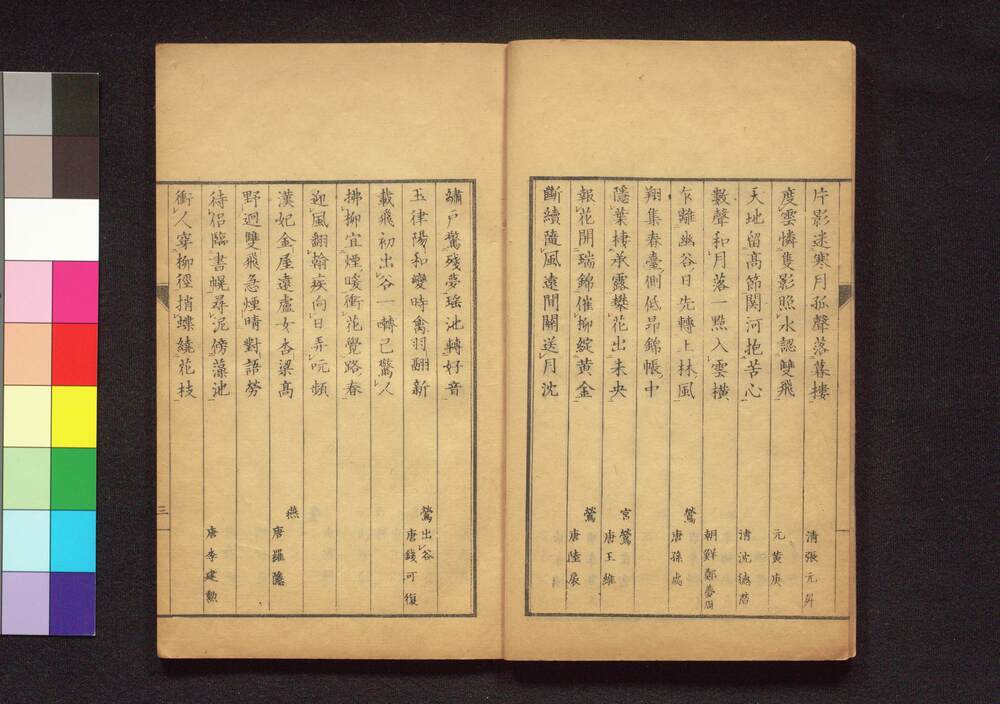 片影迷寒月孤聲落暮樓
清張元昇
度雲憐隻影照水認雙飛
元黄庚
天地留高節関河抱苦心
清沈德潜
數聲和月落一點入雲横
朝鮮鄭夢周
乍離幽谷日先轉上林風
鶯
唐孫處
翔集春臺側低昂錦帳中
隱葉棲承露攀花出未央
宮鶯
唐王維
報花開瑞錦催柳綻黄金
鶯
唐陸扆
斷續隨風遠間關送月沈
繡戸驚殘夢瑶池轉好音
玉律陽和變時禽羽翮新
鶯出谷
唐錢可復
載飛初出谷一囀已驚人
拂柳宜煙暖衝花覺路春
迎風翻翰疾向日弄吭頻
漢妃金屋遠盧女杏梁高
燕
唐羅隱
野迥雙飛急煙晴對語勞
待侶臨書幌尋泥傍藻池
唐李建勲
衝人穿柳徑捎蝶繞花枝
三